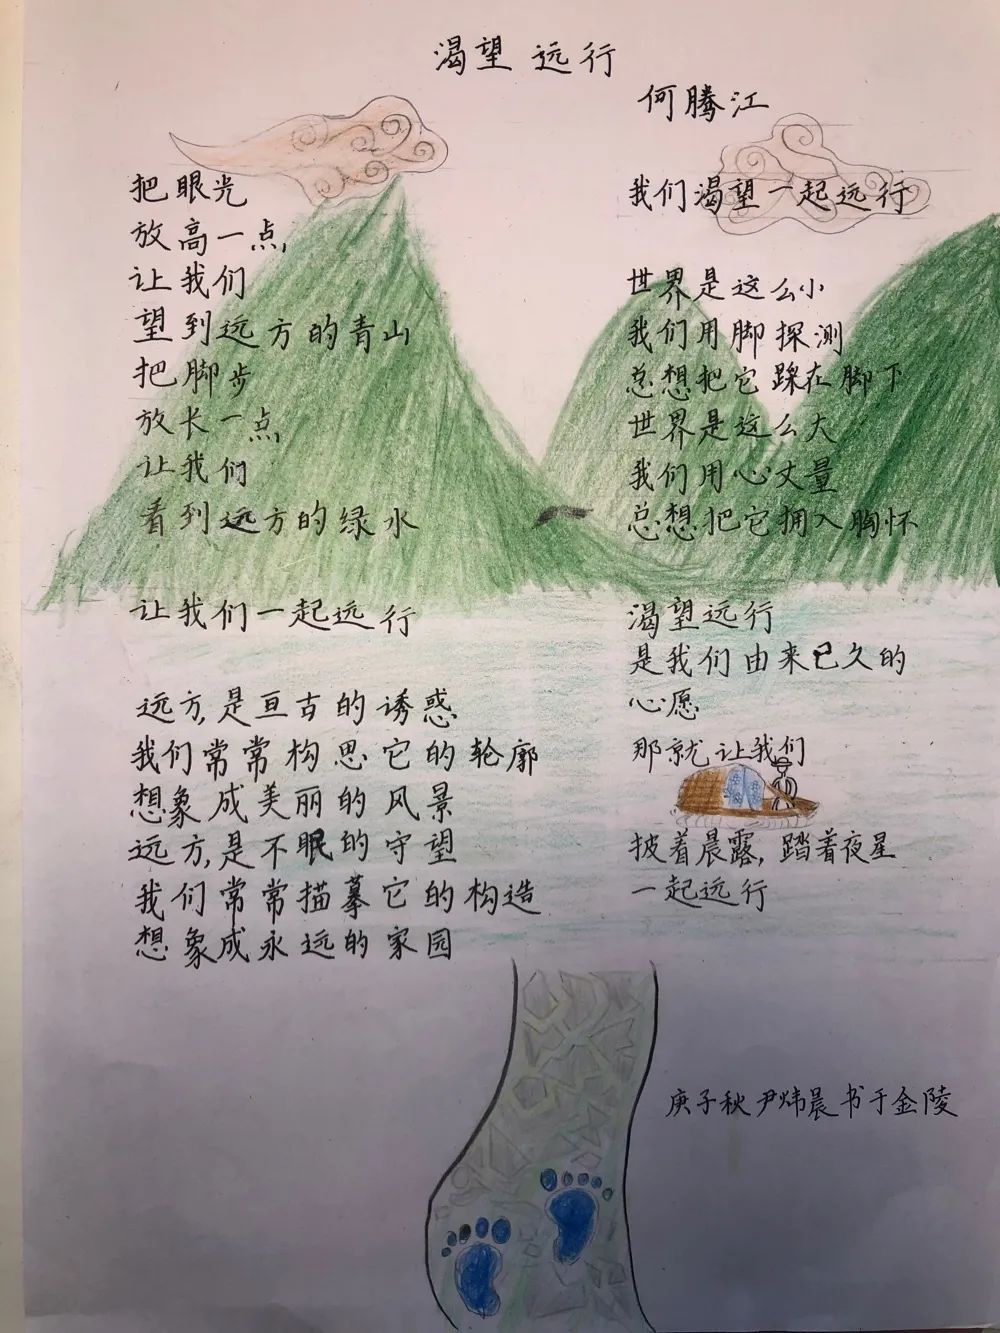 渴望远行
何腾江
把眼光
放高一点
让我们
望到远方的青山
把脚步
放长一点
让我们
看到远方的绿水
让我们一起远行
远方,是亘古的诱惑
我们常常构思它的轮廓
想象成美丽的风景
远方,是不眠的守望
我们常常描摹它的构造
想象成永远的家园
我们渴望一起远行
世界是这么小
我们用脚探测
总想把它踩在脚下
世界是这么大
我们用心丈量
总想把它拥入胸怀
渴望远行
是我们由来已久的
心愿
那就让我们
披着晨露,踏着夜星
一起远行
庚子秋尹炜晨书于金陵